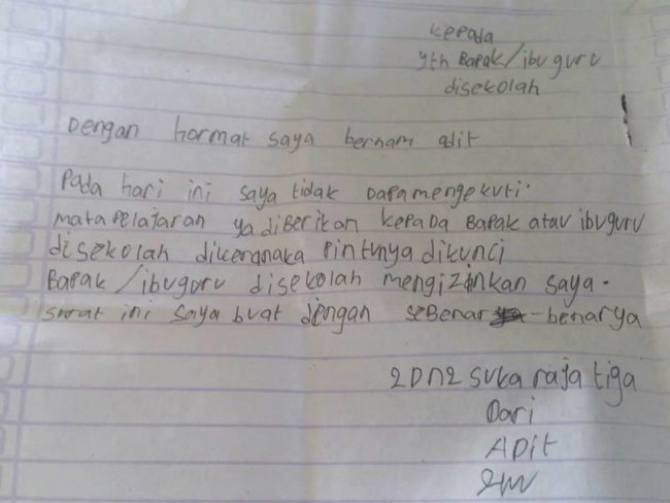 kepada
yth Bapak/ibu guru
disekolah
Dengan hormat saya bernam adit
Pada hari ini saya tidak Dapamengekuti.
mata pelajaran ya diberikan kepada Bapak atau ibuguru
disekolah dikeranaka Pintunya dikunci
Bapak /ibuguru disekolah mengizinkan saya.
surat ini saya buat dengan sebenar-benarya
2Dn2 suka raja tiga
Dari
ADit